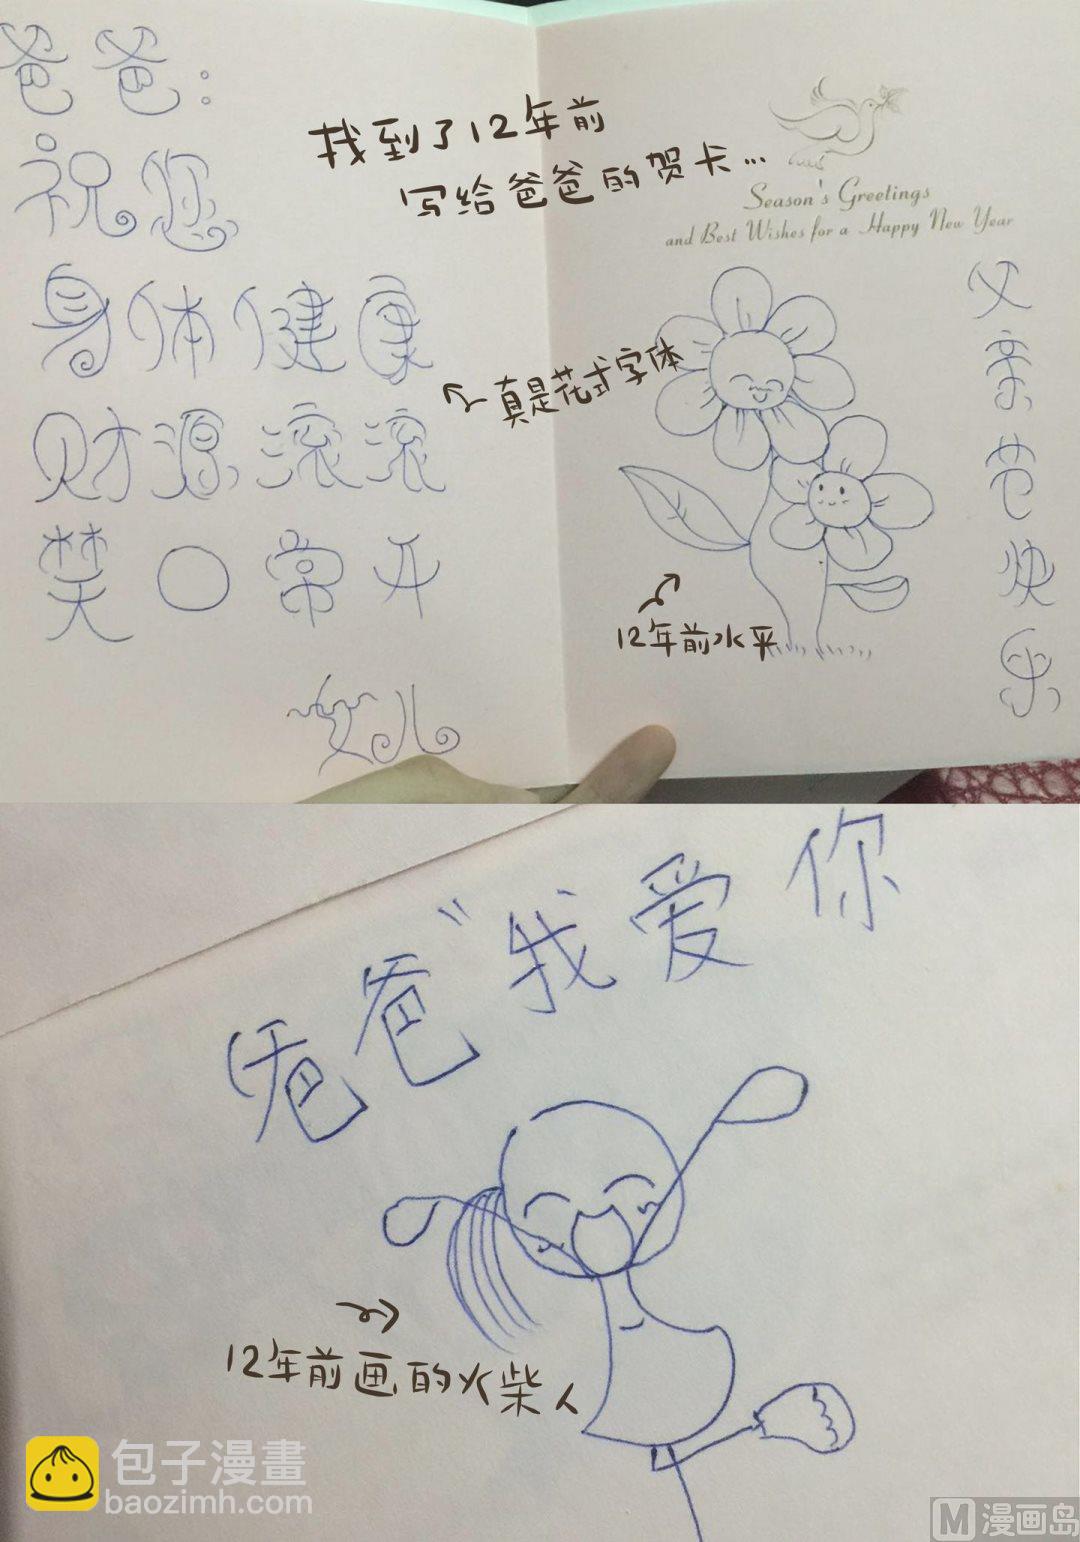 爸爸：
祝您
身体健康
财源滚滚
笑口常开
女儿
找到了12年前
写给爸爸的贺卡...
Season's Greetings
and Best Wishes for a Happy New Year
真是花式字体
12年前水平
父亲节快乐
爸爸“我爱你
12年前画的火柴人
包子漫畫
baozimh.com
M漫画岛